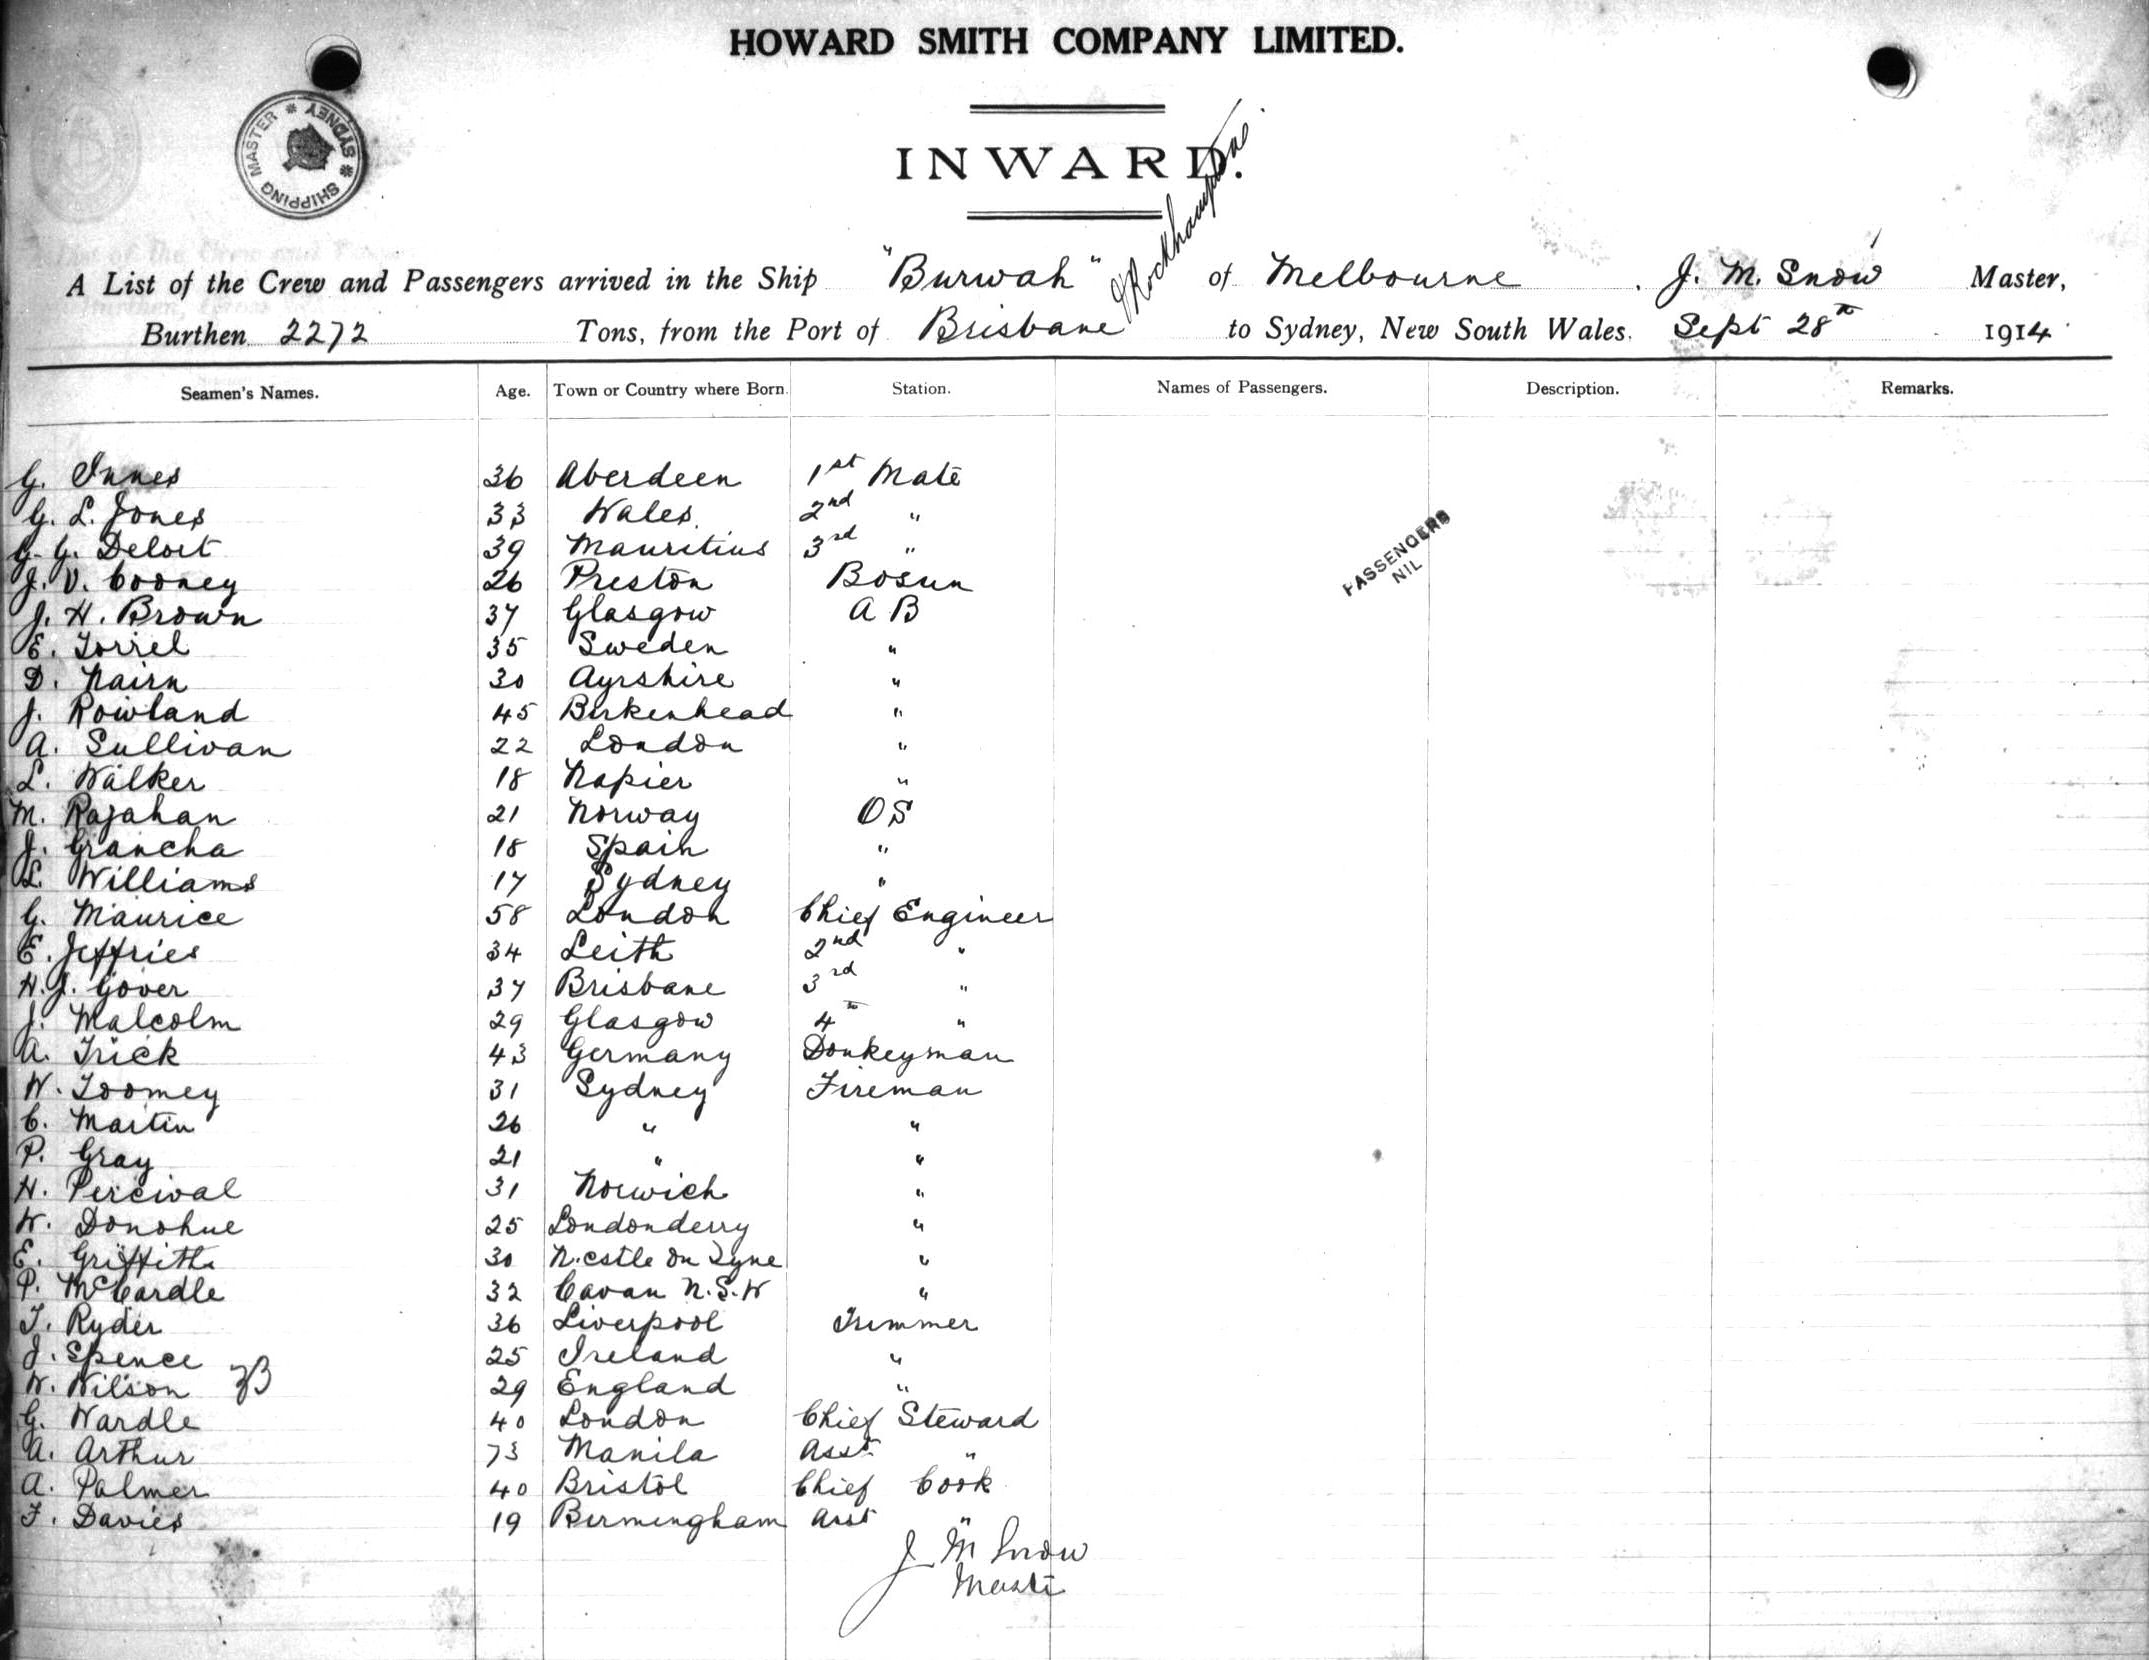 HOWARD SMITH COMPANY LIMITED.
SHIPPING MASTER * SYDNEY *
INWARD.
& Rockhampton
A List of the Crew and Passengers arrived in the Ship "Burwah" of Melbourne . J. M. Snow Master,
Burthen 2272 Tons, from the Port of Brisbane to Sydney, New South Wales. Sept 28th 1914
Seamen's Names. Age. Town or Country where Born. Station. Names of Passengers. Description. Remarks.
G. Innes 36 Aberdeen 1st Mate
G. L. Jones 33 Wales 2nd "
G. G. Delort 39 Mauritius 3rd "
PASSENGERS
NIL
J. V. Cooney 26 Preston Bosun
J. H. Brown 37 Glasgow A B
E. Torrel 35 Sweden "
D. Nairn 30 Ayrshire "
J. Rowland 45 Birkenhead "
A. Sullivan 22 London "
L. Walker 18 Napier "
M. Rajahan 21 Norway OS
J. Grancha 18 Spain "
L. Williams 17 Sydney "
G. Maurice 58 London Chief Engineer
E. Jeffries 34 Leith 2nd "
H. J. Gover 37 Brisbane 3rd "
J. Malcolm 29 Glasgow 4th "
A. Trick 43 Germany Donkeyman
W. Toomey 31 Sydney Fireman
C. Martin 26 " "
P. Gray 21 " "
H. Percival 31 Norwich "
W. Donohue 25 Londonderry "
E. Griffith 30 N.cstle on Tyne "
P. McCardle 32 Cavan N.S.W "
T. Ryder 36 Liverpool Trimmer
J. Spence 25 Ireland "
W. Wilson 29 England "
G. Wardle 40 London Chief Steward
A. Arthur 73 Manila Asst "
A. Palmer 40 Bristol Chief Cook
F. Davies 19 Birmingham Asst "
J M Snow
Master